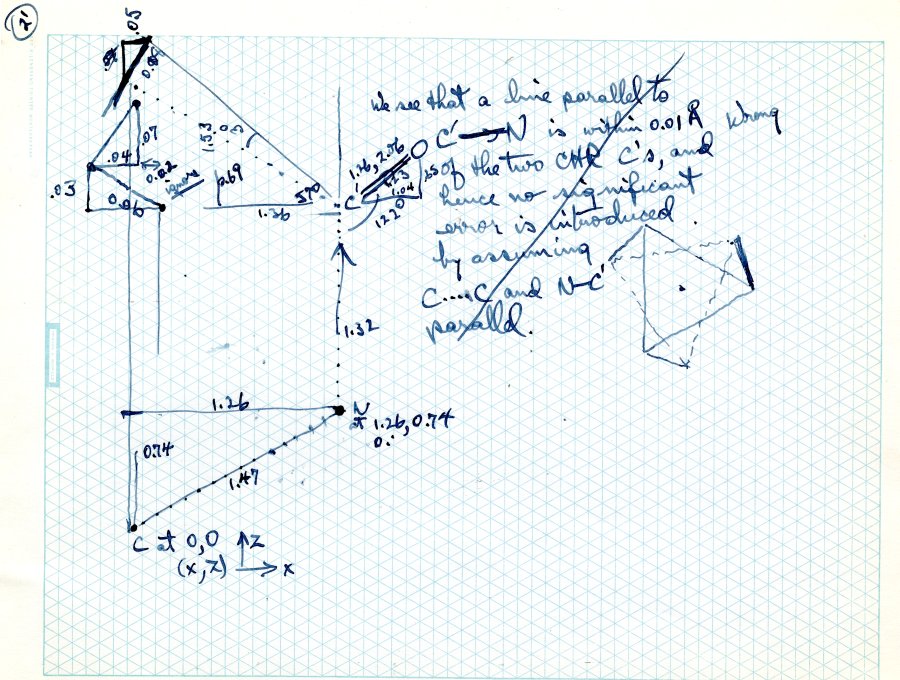 21
.05
.07
.04
.03
0.02
ignore
0.06
1.53
0.69
1.36
59°
C'
1.76, 2.56
O
1.23
1.04
.65
122°
We see that a line parallel to
C' — N is within 0.01 Å
Wrong
of the two CHR C's, and
hence no significant
error is introduced
by assuming
C....C and N-C'
parallel.
1.32
1.26
N
at 1.26, 0.74
0.74
1.47
C at 0,0
(x,z)
z
x